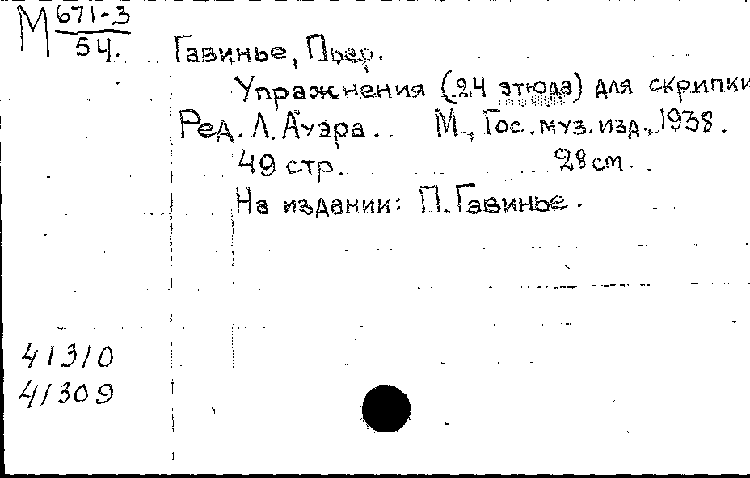 М 671-3
54.
Гавинье, Пьер.
Упражнения (24 этюда) для скрипки
Ред. Л. Ауэра. М., Гос. муз. изд., 1938.
49 стр. 28 см.
На издании: П. Гавинье.
41310
41309